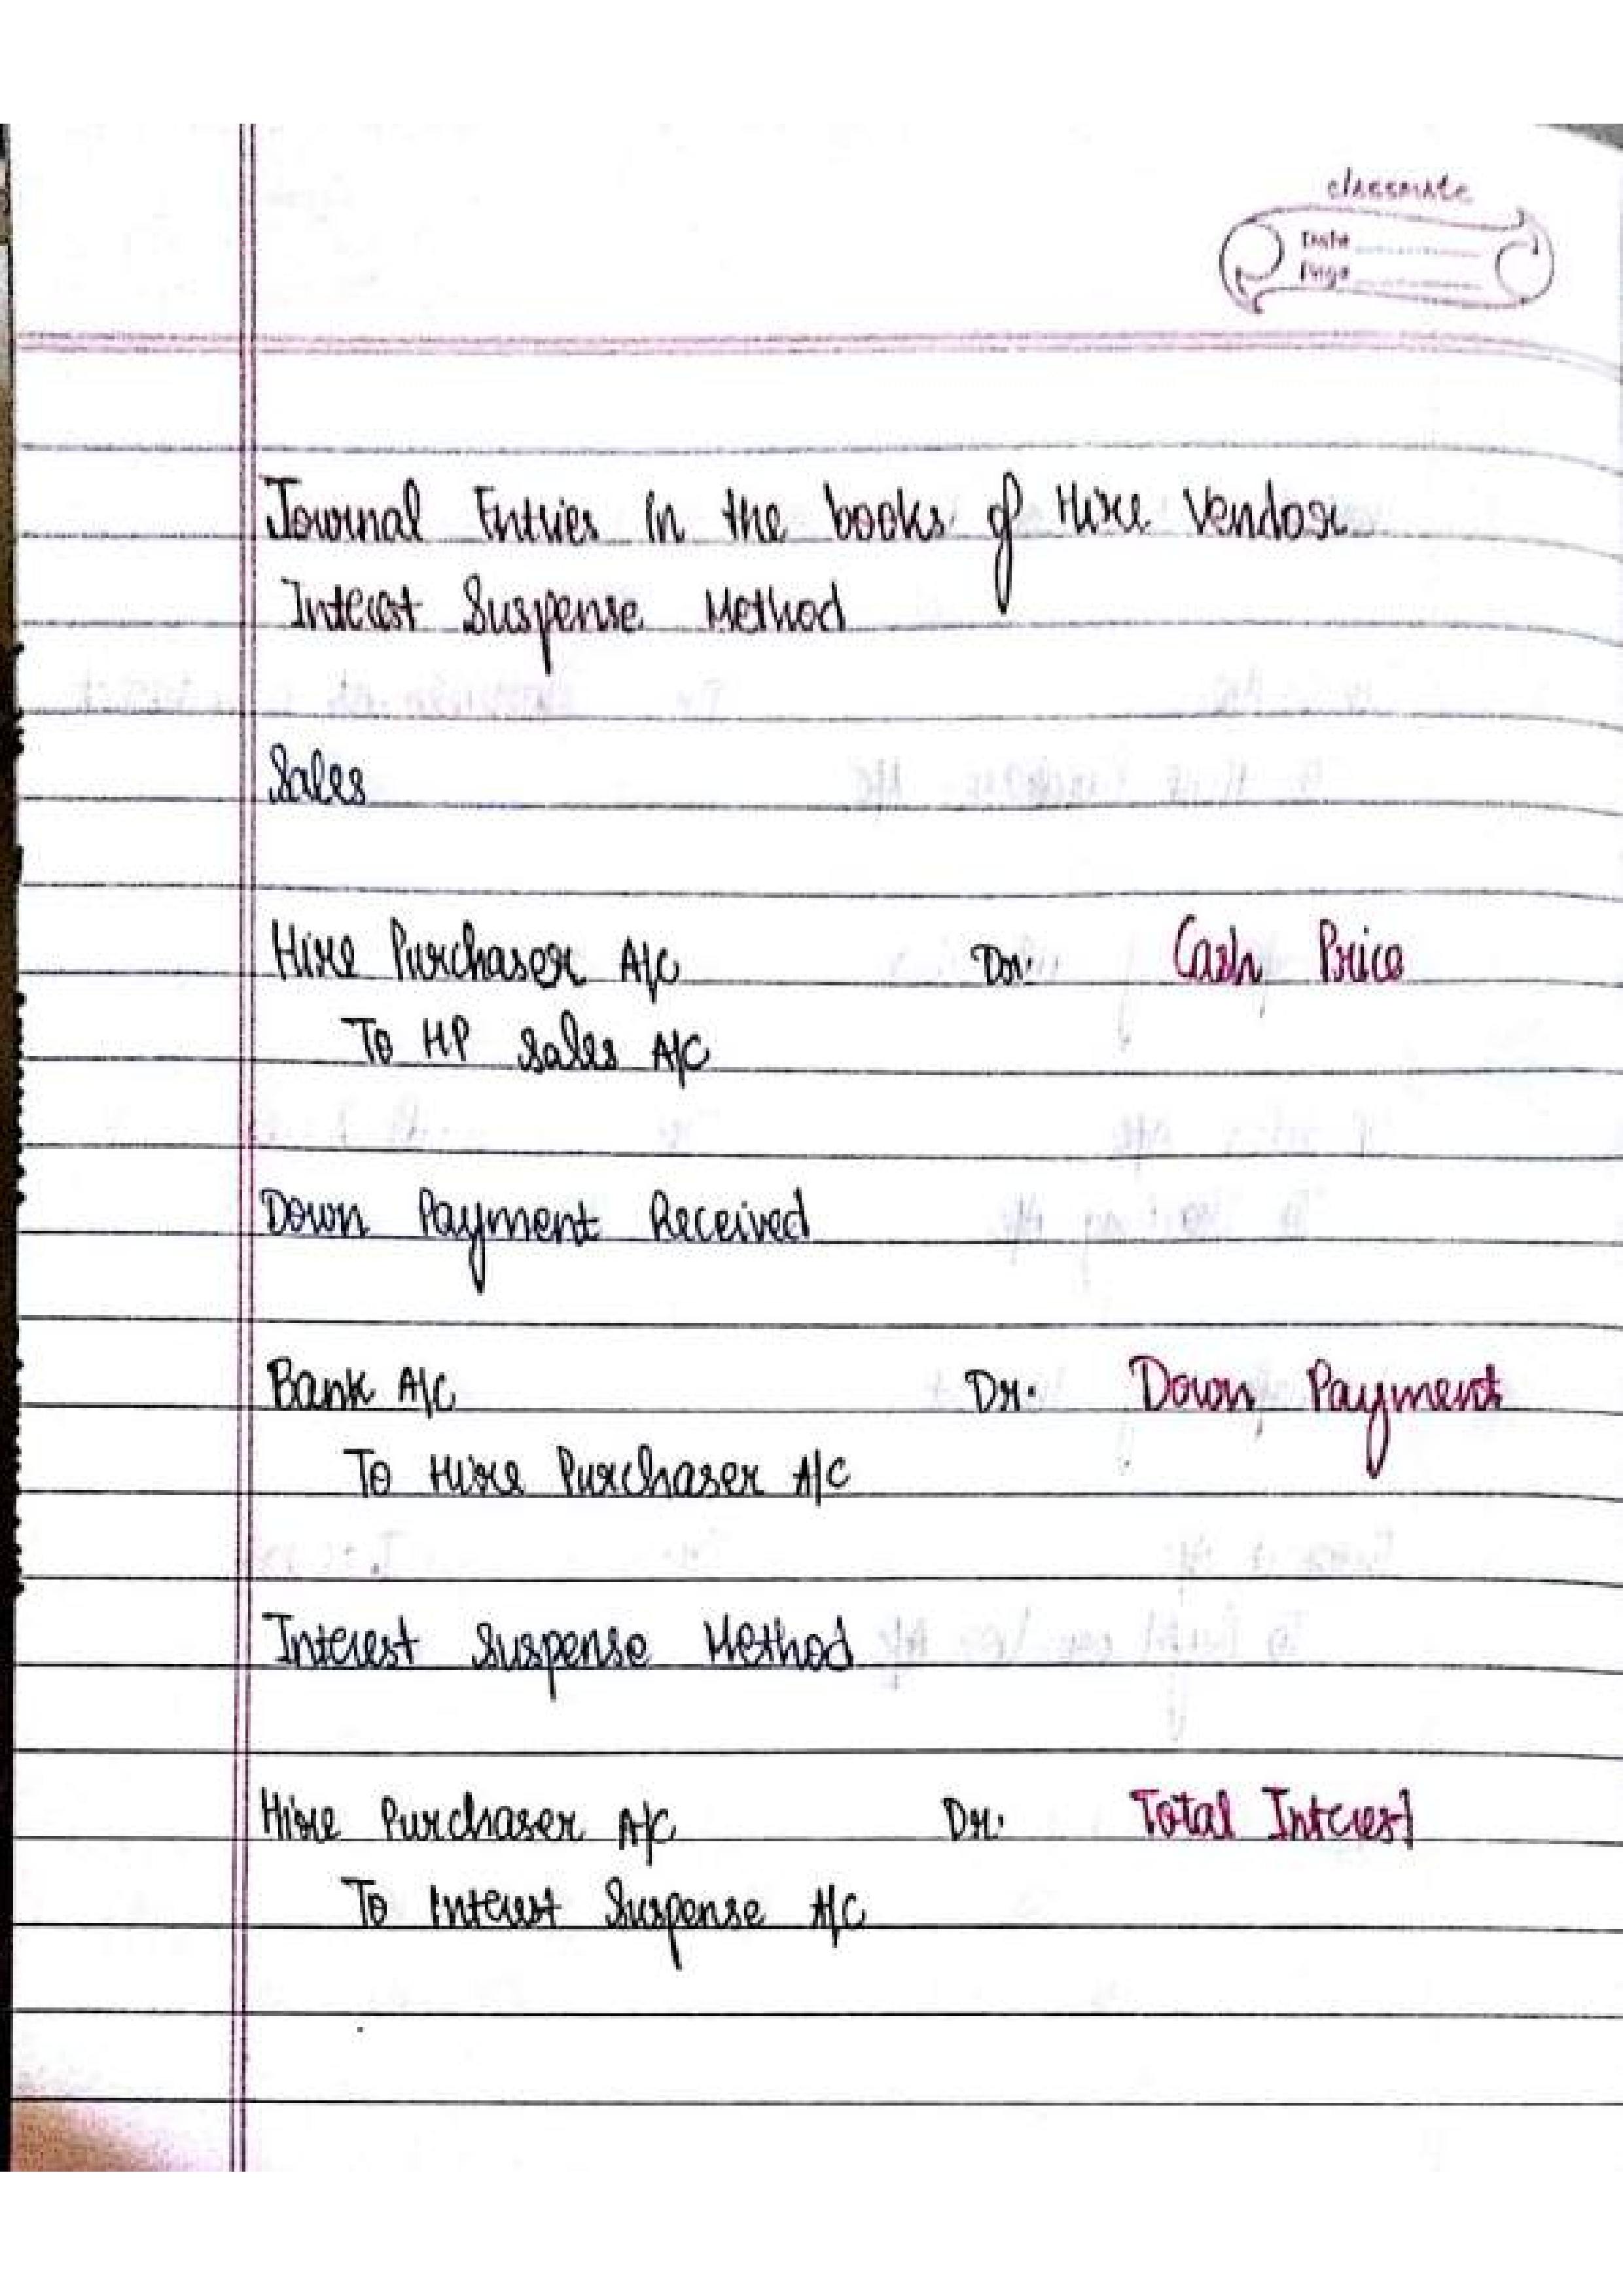 classmate
Date
Page
Journal Entries in the books of Hire Vendor
Interest Suspense Method
Sales
Hire Purchaser A/C Dr. Cash Price
To HP Sales A/C
Down Payment Received
Bank A/C Dr. Down Payment
To Hire Purchaser A/C
Interest Suspense Method
Hire Purchaser A/C Dr. Total Interest
To Interest Suspense A/C